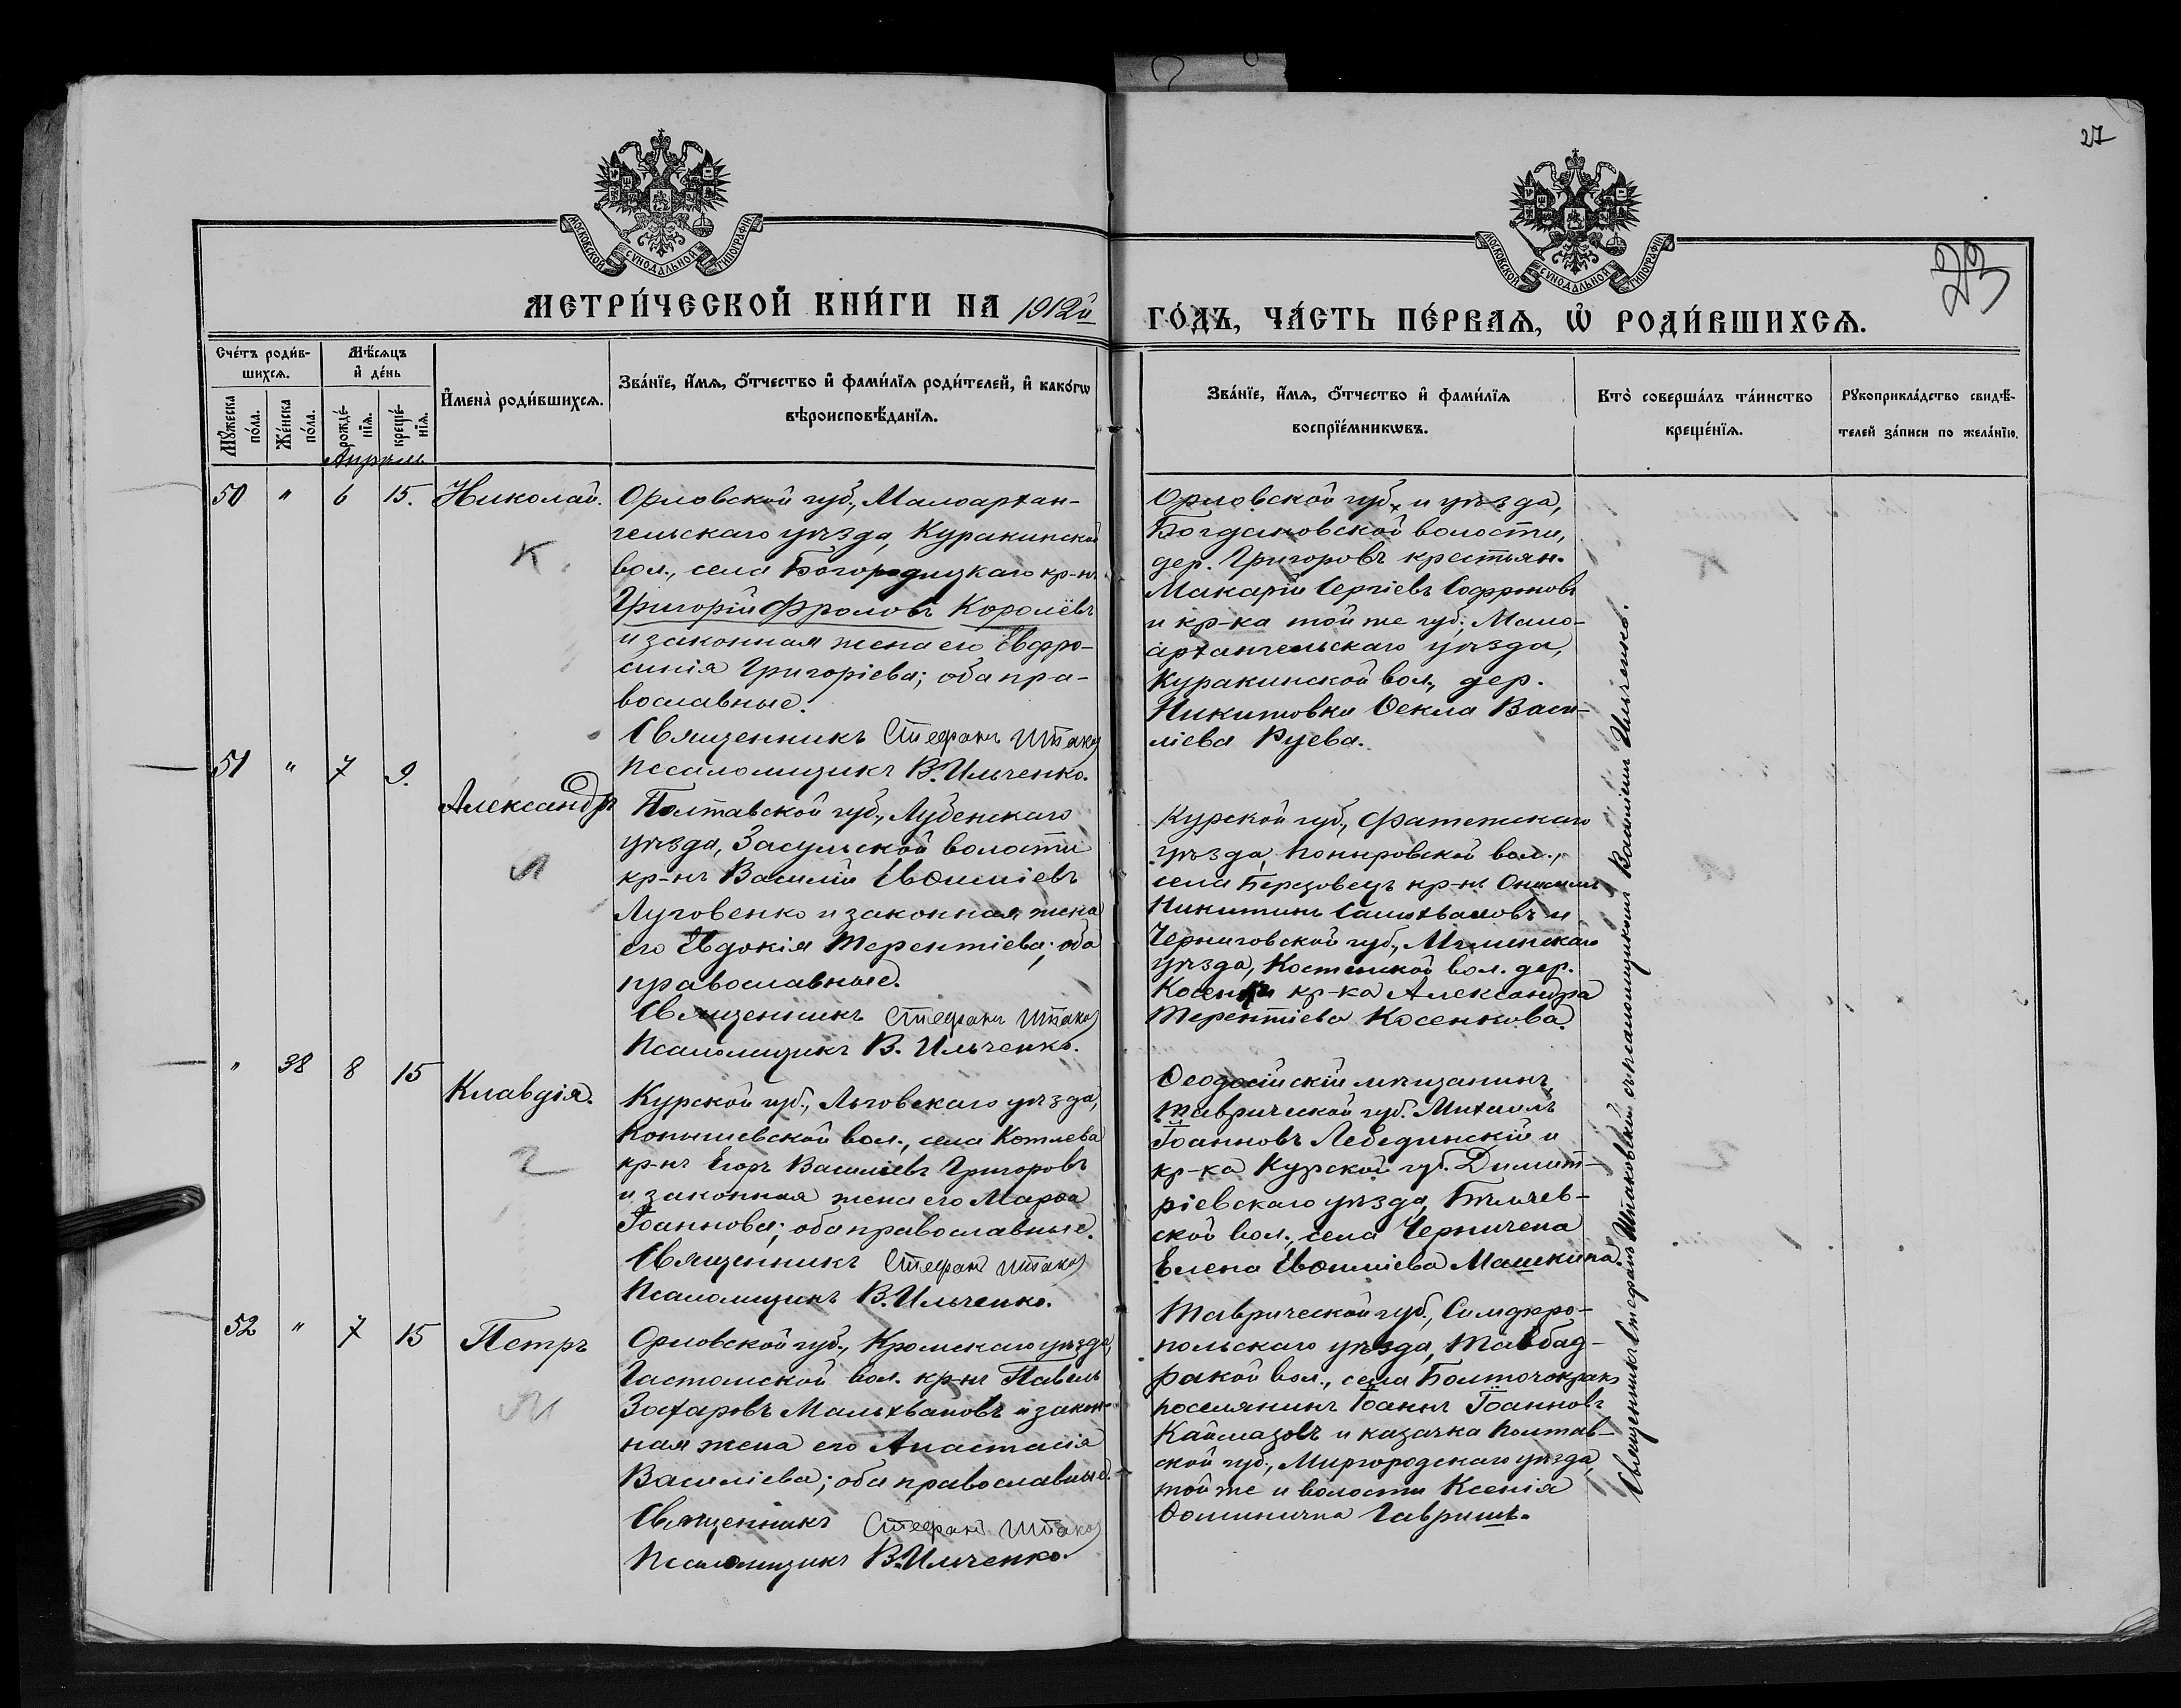 27
23
МОСКОВСКОЙ СѴНОДАЛЬНОЙ ТИПОГРАФІИ
МОСКОВСКОЙ СѴНОДАЛЬНОЙ ТИПОГРАФІИ
МЕТРИ́ЧЕСКОЙ КНИ́ГИ НА 1912й
ГО́ДЪ, ЧА́СТЬ ПЕ́РВАѦ, Ѡ҆ РОДИ́ВШИХСѦ.
Сче́тъ роди́в-
шихсѧ.
Мѣ́сѧцъ
и҆ де́нь
Мꙋ́жеска по́ла.
Же́нска по́ла.
рожде́-
нїѧ.
креще́-
нїѧ.
И҆мена̀ роди́вшихсѧ.
Зва́нїе, и҆́мѧ, ѻ҆́тчество и҆ фами́лїѧ роди́телей, и҆ како́гѡ
вѣроисповѣ́данїѧ.
Зва́нїе, и҆́мѧ, ѻ҆́тчество и҆ фами́лїѧ
воспрїе́мникѡвъ.
Кто̀ соверша́лъ та́инство
креще́нїѧ.
Рꙋкоприкла́дство свидѣ́-
телей за́писи по жела́нїю.
Апрѣль
50 " 6 15. Николай.
К.
Орловской губ., Малоархан-
гельскаго уѣзда, Куракинской
вол., села Богородицкаго кр-нъ
Григорій Фроловъ Королёвъ
и законная жена его Евфро-
синія Григоріева; оба пра-
вославные.
Священникъ Стефанъ Шпак
Псаломщикъ В. Ильченко.
Орловской губ. и уѣзда,
Богдановской волости,
дер. Григоровъ крестьян.
Макарій Сергіевъ Софроновъ
и кр-ка той же губ., Мало-
архангельскаго уѣзда,
Куракинской вол., дер.
Никитовки Ѳекла Васи-
ліева Руева.
51 " 7 9. Александръ
Л
Полтавской губ., Лубенскаго
уѣзда, Засульской волости
кр-нъ Василій Евѳиміевъ
Луговенко и законная жена
его Евдокія Терентіева; оба
православные.
Священникъ Стефанъ Шпак
Псаломщикъ В. Ильченко.
Курской губ., Фатежскаго
уѣзда, Поныровской вол.,
села Березовецъ кр-нъ Онисимъ
Никитинъ Самохваловъ и
Черниговской губ., Мглинскаго
уѣзда, Костенской вол. дер.
кр-ка Александра
Терентіева Косенкова.
" 38 8 15 Клавдія.
Г
Курской губ., Льговскаго уѣзда,
Конышевской вол., села Котлева
кр-нъ Егоръ Василіевъ Григоровъ
и законная жена его Марѳа
Іоаннова; оба православные.
Священникъ Стефанъ Шпак
Псаломщикъ В. Ильченко.
Ѳеодосійскій мѣщанинъ
Таврической губ. Михаилъ
Іоанновъ Лебединскій и
кр-ка Курской губ. Димит-
ріевскаго уѣзда, Бѣличев-
ской вол., села Черничена
Елена Евѳиміева Машкина.
52 " 7 15 Петръ
М
Орловской губ., Кромскаго уѣзда,
Гастомской вол. кр-нъ Павелъ
Захаровъ Мальхвановъ и закон-
ная жена его Анастасія
Василіева; оба православные.
Священникъ Стефанъ Шпак
Псаломщикъ В. Ильченко.
Таврической губ., Симферо-
польскаго уѣзда, Тавбад-
ракой вол., села Болточокракъ
поселянинъ Іоаннъ Іоанновъ
Каймазовъ и казачка Полтав-
ской губ., Миргородскаго уѣзда,
той же и волости Ксенія
Ѳоминична Гавришъ.
Священникъ Стефанъ Шпаковскій съ псаломщикомъ Василіемъ Ильченко.